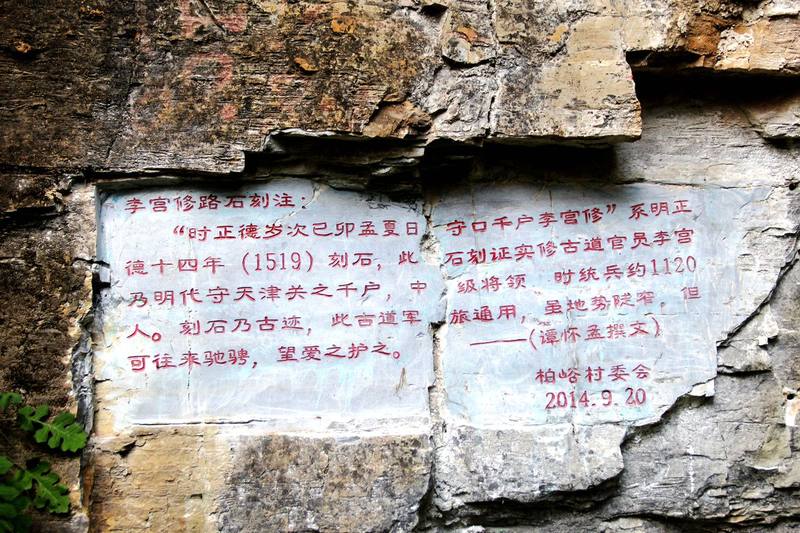 李宫修路石刻注:
“时正德岁次已卯孟夏日守口千户李宫修”系明正
德十四年(1519)刻石,此石刻证实修古道官员李宫
乃明代守天津关之千户,中级将领 时统兵约1120
人。刻石乃古迹,此古道军旅通用,虽地势隘窄,但
可往来驰骋,望爱之护之。——(谭怀孟撰文)
柏峪村委会
2014.9.20